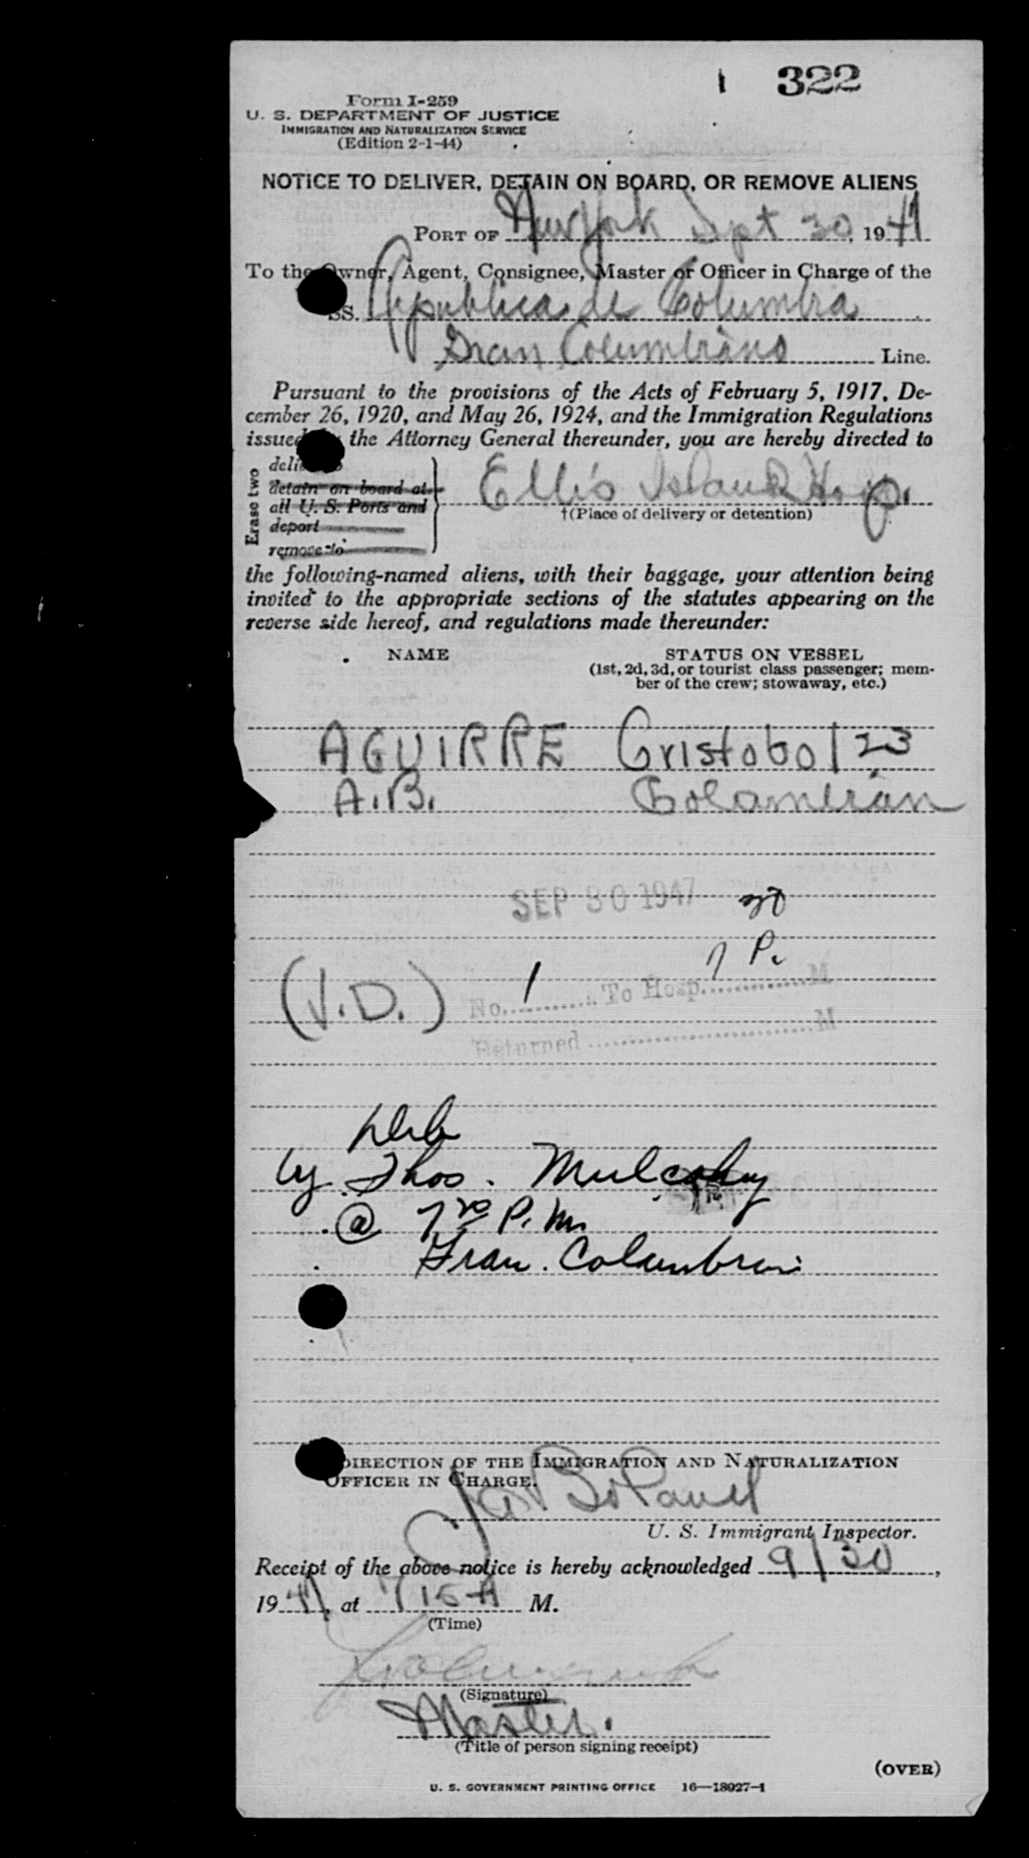 1 322
Form I-259
U. S. DEPARTMENT OF JUSTICE
IMMIGRATION AND NATURALIZATION SERVICE
(Edition 2-1-44)
NOTICE TO DELIVER, DETAIN ON BOARD, OR REMOVE ALIENS
PORT OF New York Sept 30, 1947
To the Owner, Agent, Consignee, Master or Officer in Charge of the
SS. Republica de Columbia
Gran Columbiano Line.
Pursuant to the provisions of the Acts of February 5, 1917, De-
cember 26, 1920, and May 26, 1924, and the Immigration Regulations
issued the Attorney General thereunder, you are hereby directed to
Erase two
detain on board at
all U. S. Ports and
deport
remove to
Ellis Island Hosp.
†(Place of delivery or detention)
the following-named aliens, with their baggage, your attention being
invited to the appropriate sections of the statutes appearing on the
reverse side hereof, and regulations made thereunder:
NAME STATUS ON VESSEL
(1st, 2d, 3d, or tourist class passenger; mem-
ber of the crew; stowaway, etc.)
AGUIRRE Cristobol 23
A.B. Colombian
SEP 30 1947
7 P.
(V.D.) No. 1 To Hosp. M
Returned M
Delv
by Thos. Mulcahy
@ 7 20 P.M.
Gran. Columbian
DIRECTION OF THE IMMIGRATION AND NATURALIZATION
OFFICER IN CHARGE.
U. S. Immigrant Inspector.
Receipt of the above notice is hereby acknowledged 9/30,
1947, at 715 A M.
(Time)
(Signature)
Master.
(Title of person signing receipt)
(OVER)
U. S. GOVERNMENT PRINTING OFFICE 16—18027-1